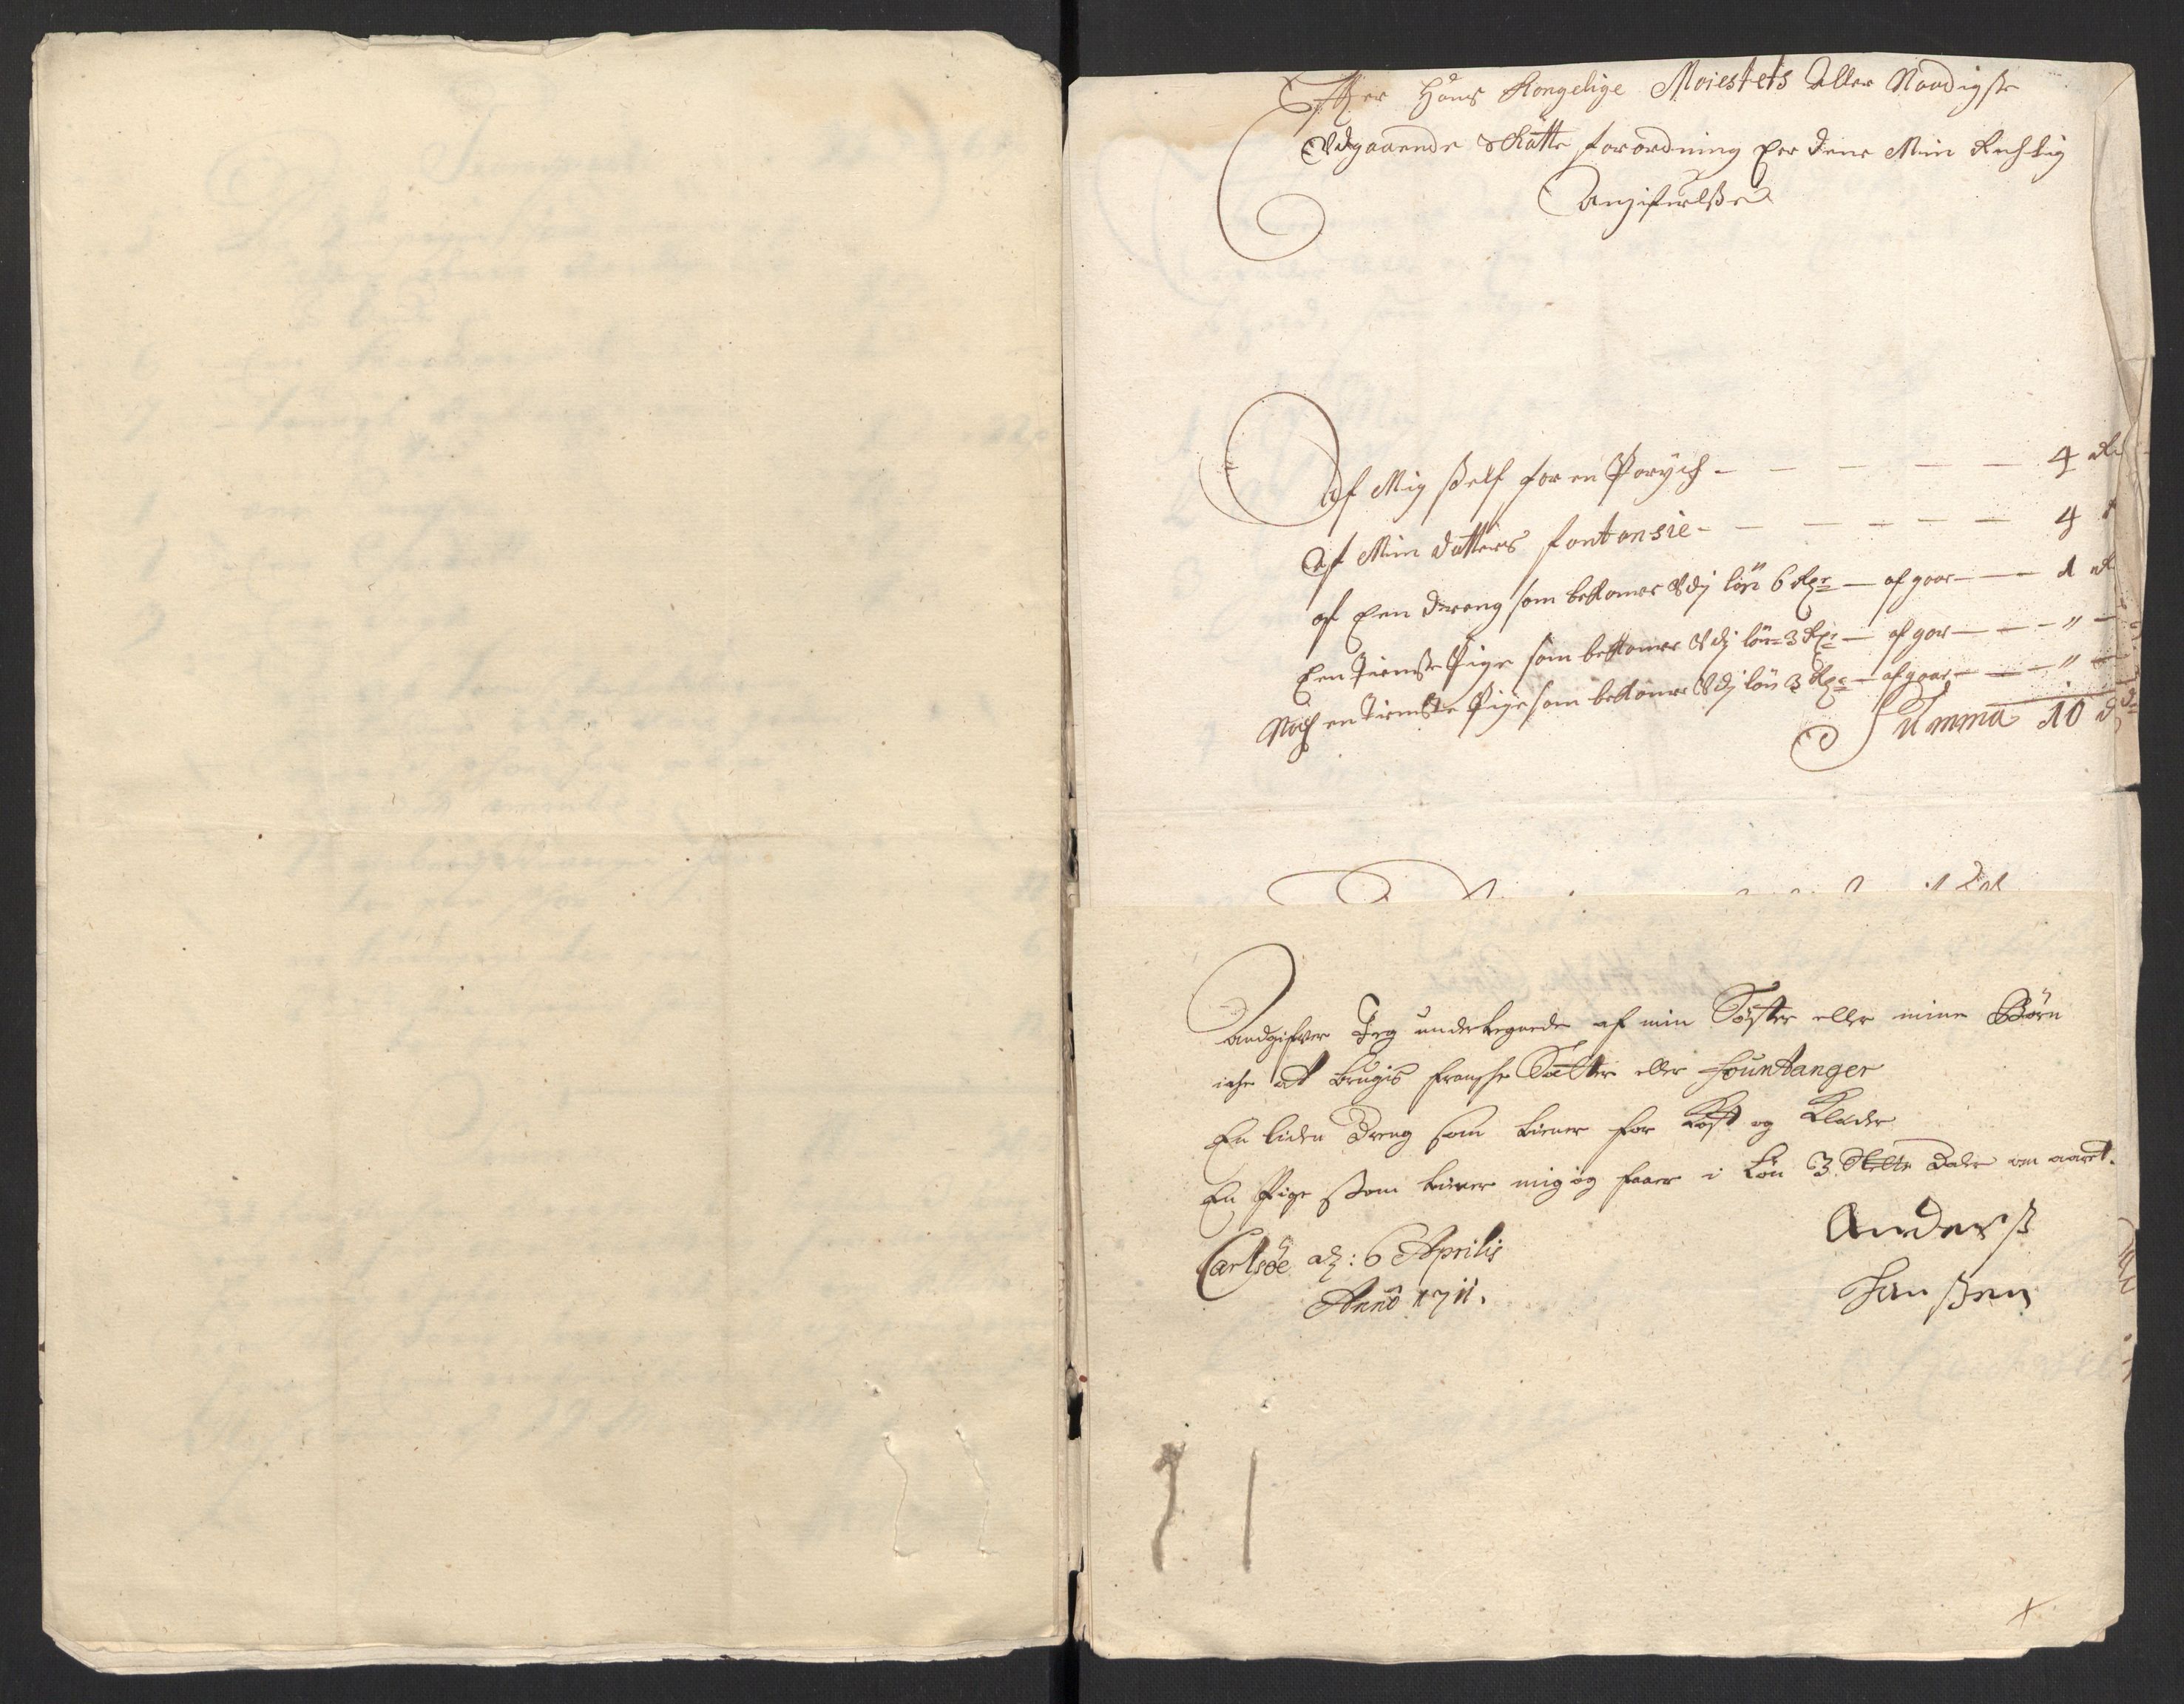 Effter Hans Kongelige Maiestets Aller Naadigste
Udgaaende Skatte forordning Er dene Min Rechtig
Angifuelsse
Af Mig Self for en Parych - - - - - 4
Af Min datters fontansie - - - - - 4
af Een dreng som bekomer Udj løn 6 Rdr - af gaar - - 1
Een Tienste Pige som bekomer Udj løn 3 Rdr - af gar - - - "
Noch en Tienste Pige som bekomer Udj løn 3 Rdr - afgaar - - "
Summa 10
Andgifver Jeg undertegnede af min Søster eller mine Børn
iche at brugis franshe Sætter eller fountanger
En liden Dreng som tiener for Kost og Klæder
En Pige Som tiener mig og faar i Løn 3 Slette Daler om aaret.
Carlsøe dz: 6 Aprilis
Anno 1711.
Anderß
Hanßen
71